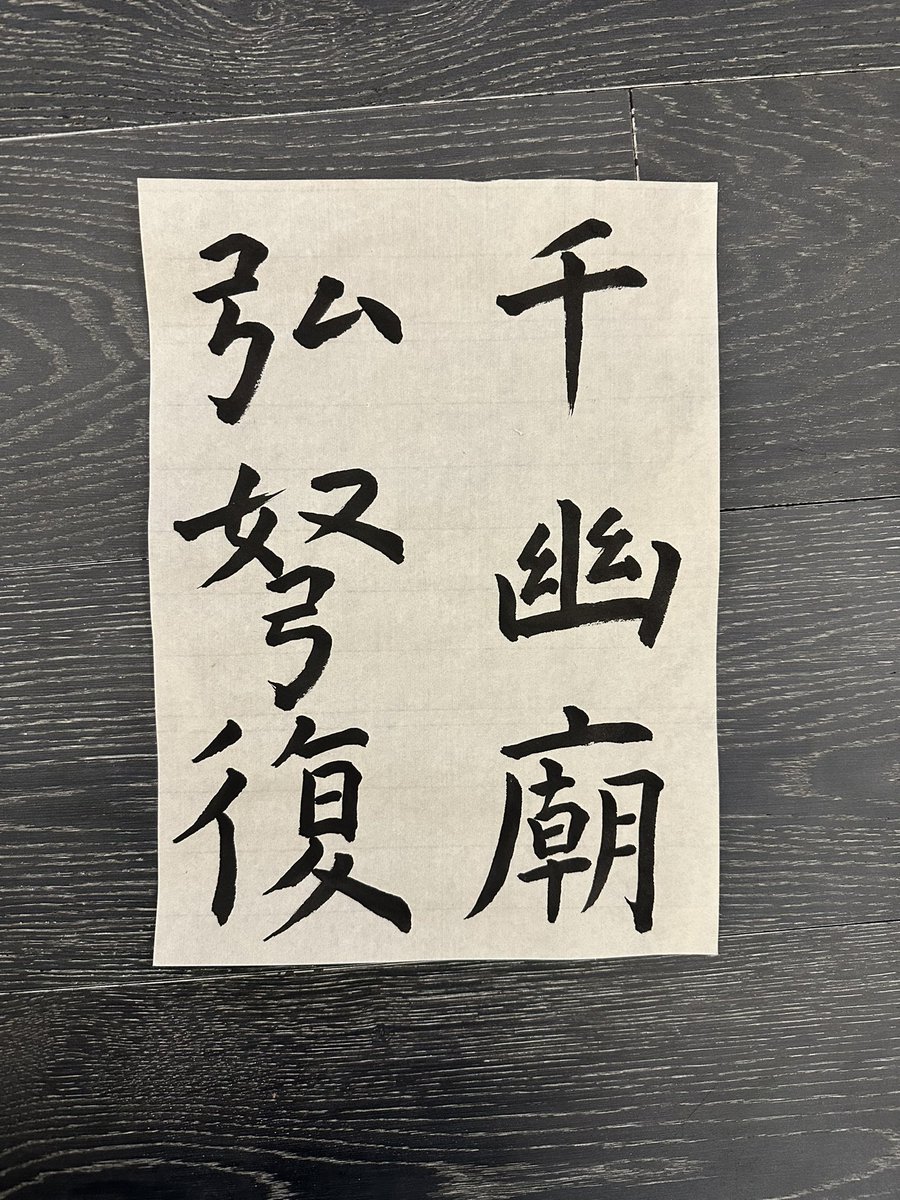 千幽廟
弘弩復